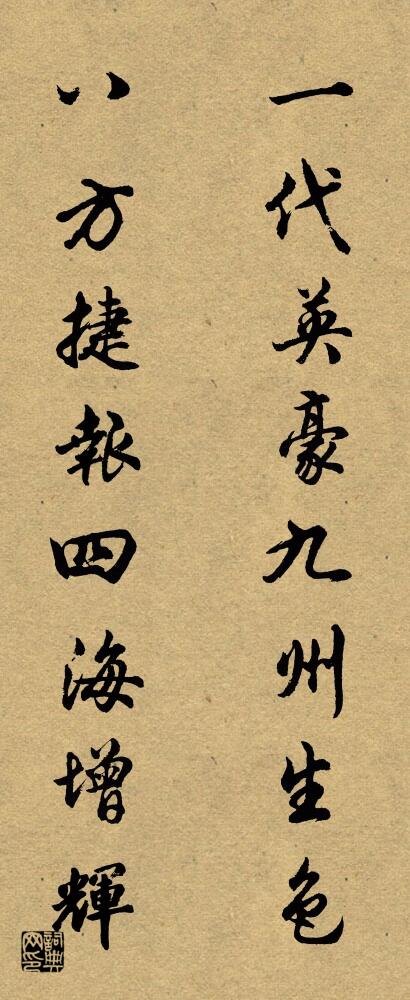 一代英豪九州生色
八方捷報四海增輝